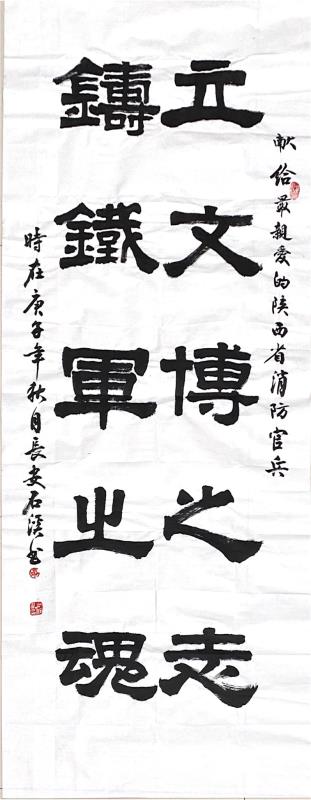 献给最親爱的陕西省消防官兵
立文博之志
鑄鐵軍之魂
時在庚子年秋月長安石溪书